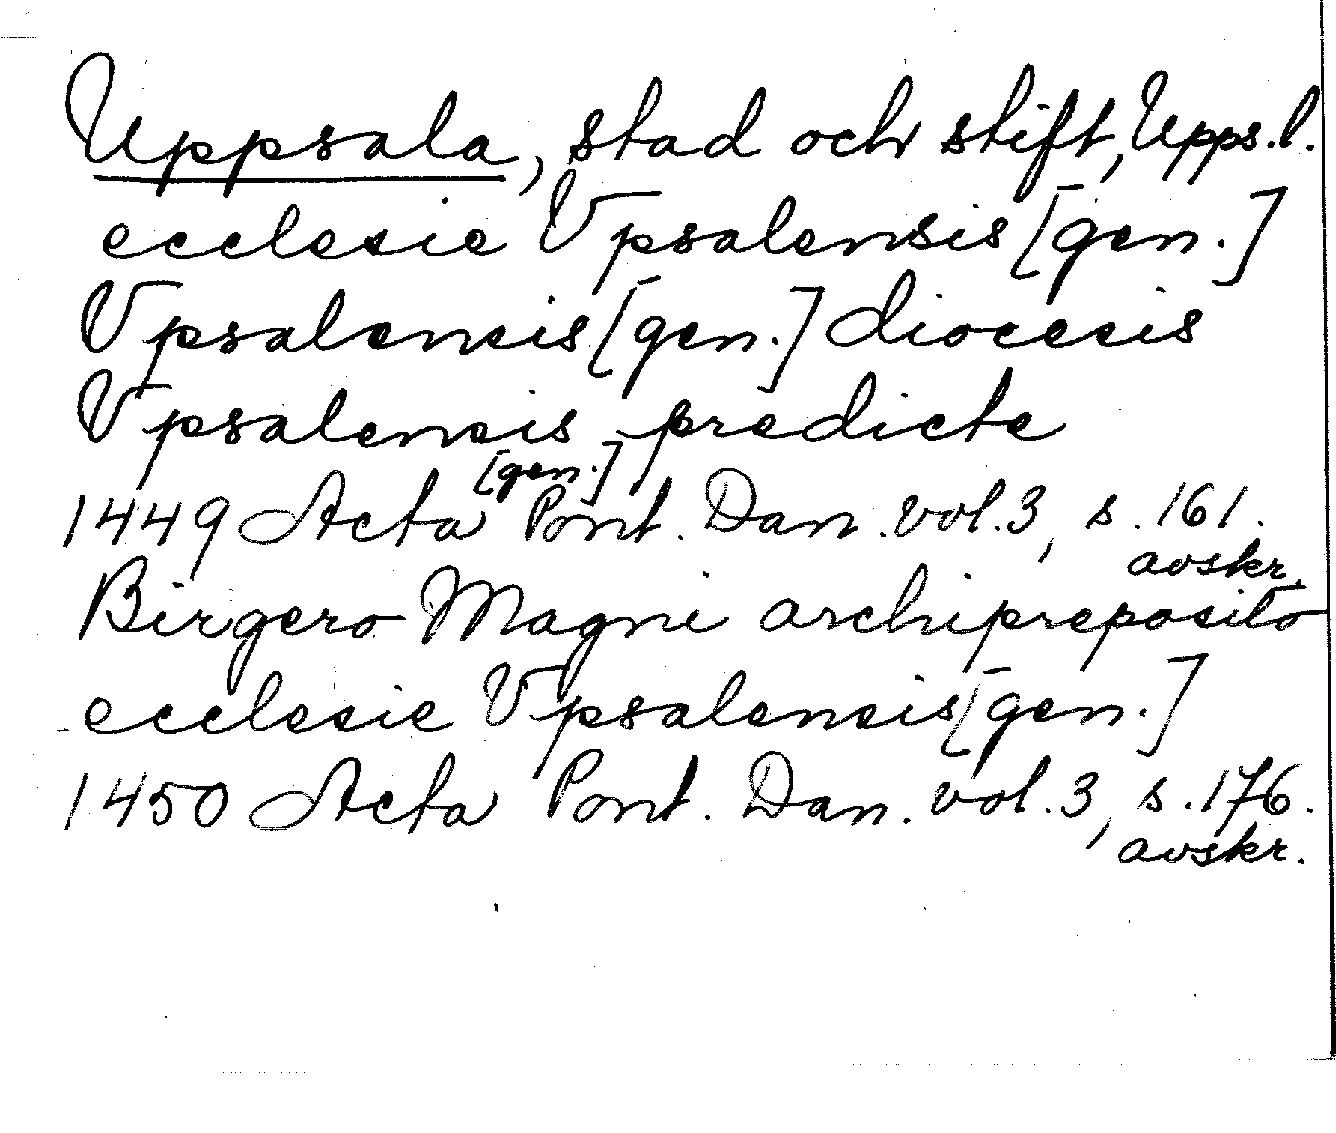 Uppsala, stad och stift, Upps.l.
ecclesie Vpsalensis [gen.]
Vpsalensis [gen.] diocesis
Vpsalensis predicte
[gen.]
1449 Acta Pont. Dan. vol. 3, s. 161.
avskr.
Birgero Magni archipreposito
ecclesie Vpsalensis [gen.]
1450 Acta Pont. Dan. vol. 3, s. 176.
avskr.